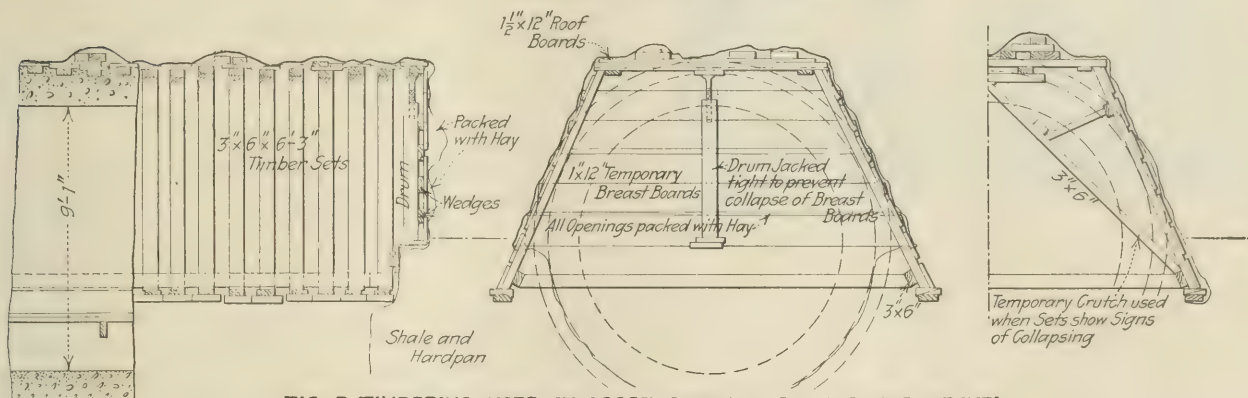 1½"×12" Roof
Boards
9'-1"
3"×6"×6'-3"
Timber Sets
Drum
Packed
with Hay
Wedges
Shale and
Hardpan
1"×12" Temporary
Breast Boards
Drum Jacked
tight to prevent
collapse of Breast
Boards
All Openings packed with Hay
3"×6"
3"×6"
Temporary Crutch used
when Sets show Signs
of Collapsing